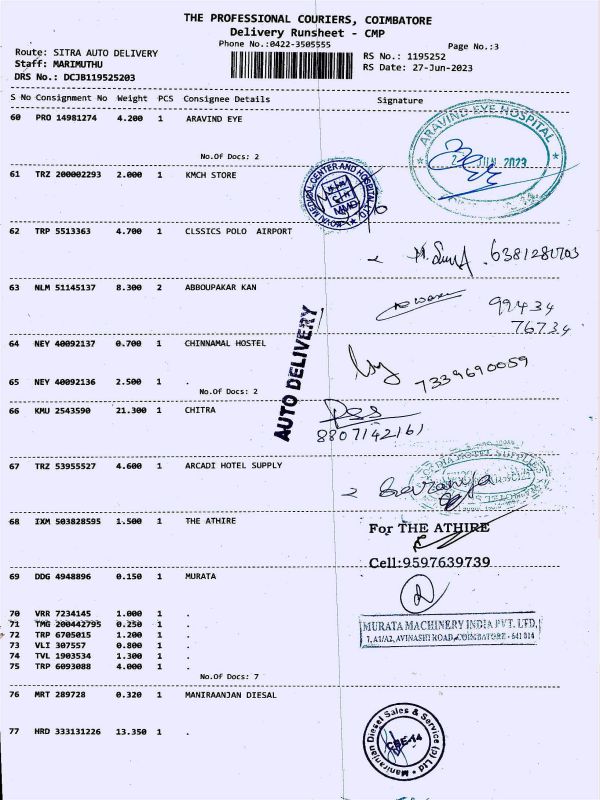 THE PROFESSIONAL COURIERS, COIMBATORE
Delivery Runsheet - CMP
Phone No.:0422-3505555
Page No.:3
Route: SITRA AUTO DELIVERY
RS No.: 1195252
Staff: MARIMUTHU
RS Date: 27-Jun-2023
DRS No.: DCJB119525203
S No Consignment No Weight PCS Consignee Details Signature
60 PRO 14981274 4.200 1 ARAVIND EYE
No.Of Docs: 2
ARAVIND EYE HOSPITAL
JUN 2023
61 TRZ 200002293 2.000 1 KMCH STORE
MEDICAL CENTER AND HOSPITAL LTD
62 TRP 5513363 4.700 1 CLSSICS POLO AIRPORT
63 NLM 51145137 8.300 2 ABBOUPAKAR KAN
99434
76734
AUTO DELIVERY
64 NEY 40092137 0.700 1 CHINNAMAL HOSTEL
7339690059
65 NEY 40092136 2.500 1 .
No.Of Docs: 2
66 KMU 2543590 21.300 1 CHITRA
8807142161
67 TRZ 53955527 4.600 1 ARCADI HOTEL SUPPLY
HOTEL SUPPLIES
68 IXM 503828595 1.500 1 THE ATHIRE
For THE ATHIRE
Cell:9597639739
69 DDG 4948896 0.150 1 MURATA
70 VRR 7234145 1.000 1 .
71 TMG 200442795 0.250 1 .
72 TRP 6705015 1.200 1 .
73 VLI 307557 0.800 1 .
74 TVL 1903534 1.300 1 .
75 TRP 6093088 4.000 1 .
MURATA MACHINERY INDIA PVT. LTD.
7, A1/A2, AVINASHI ROAD, COIMBATORE - 641 014
No.Of Docs: 7
76 MRT 289728 0.320 1 MANIRAANJAN DIESAL
77 HRD 333131226 13.350 1 .
Maniranjan Diesel Sales & Service (p) Ltd
CBE-14